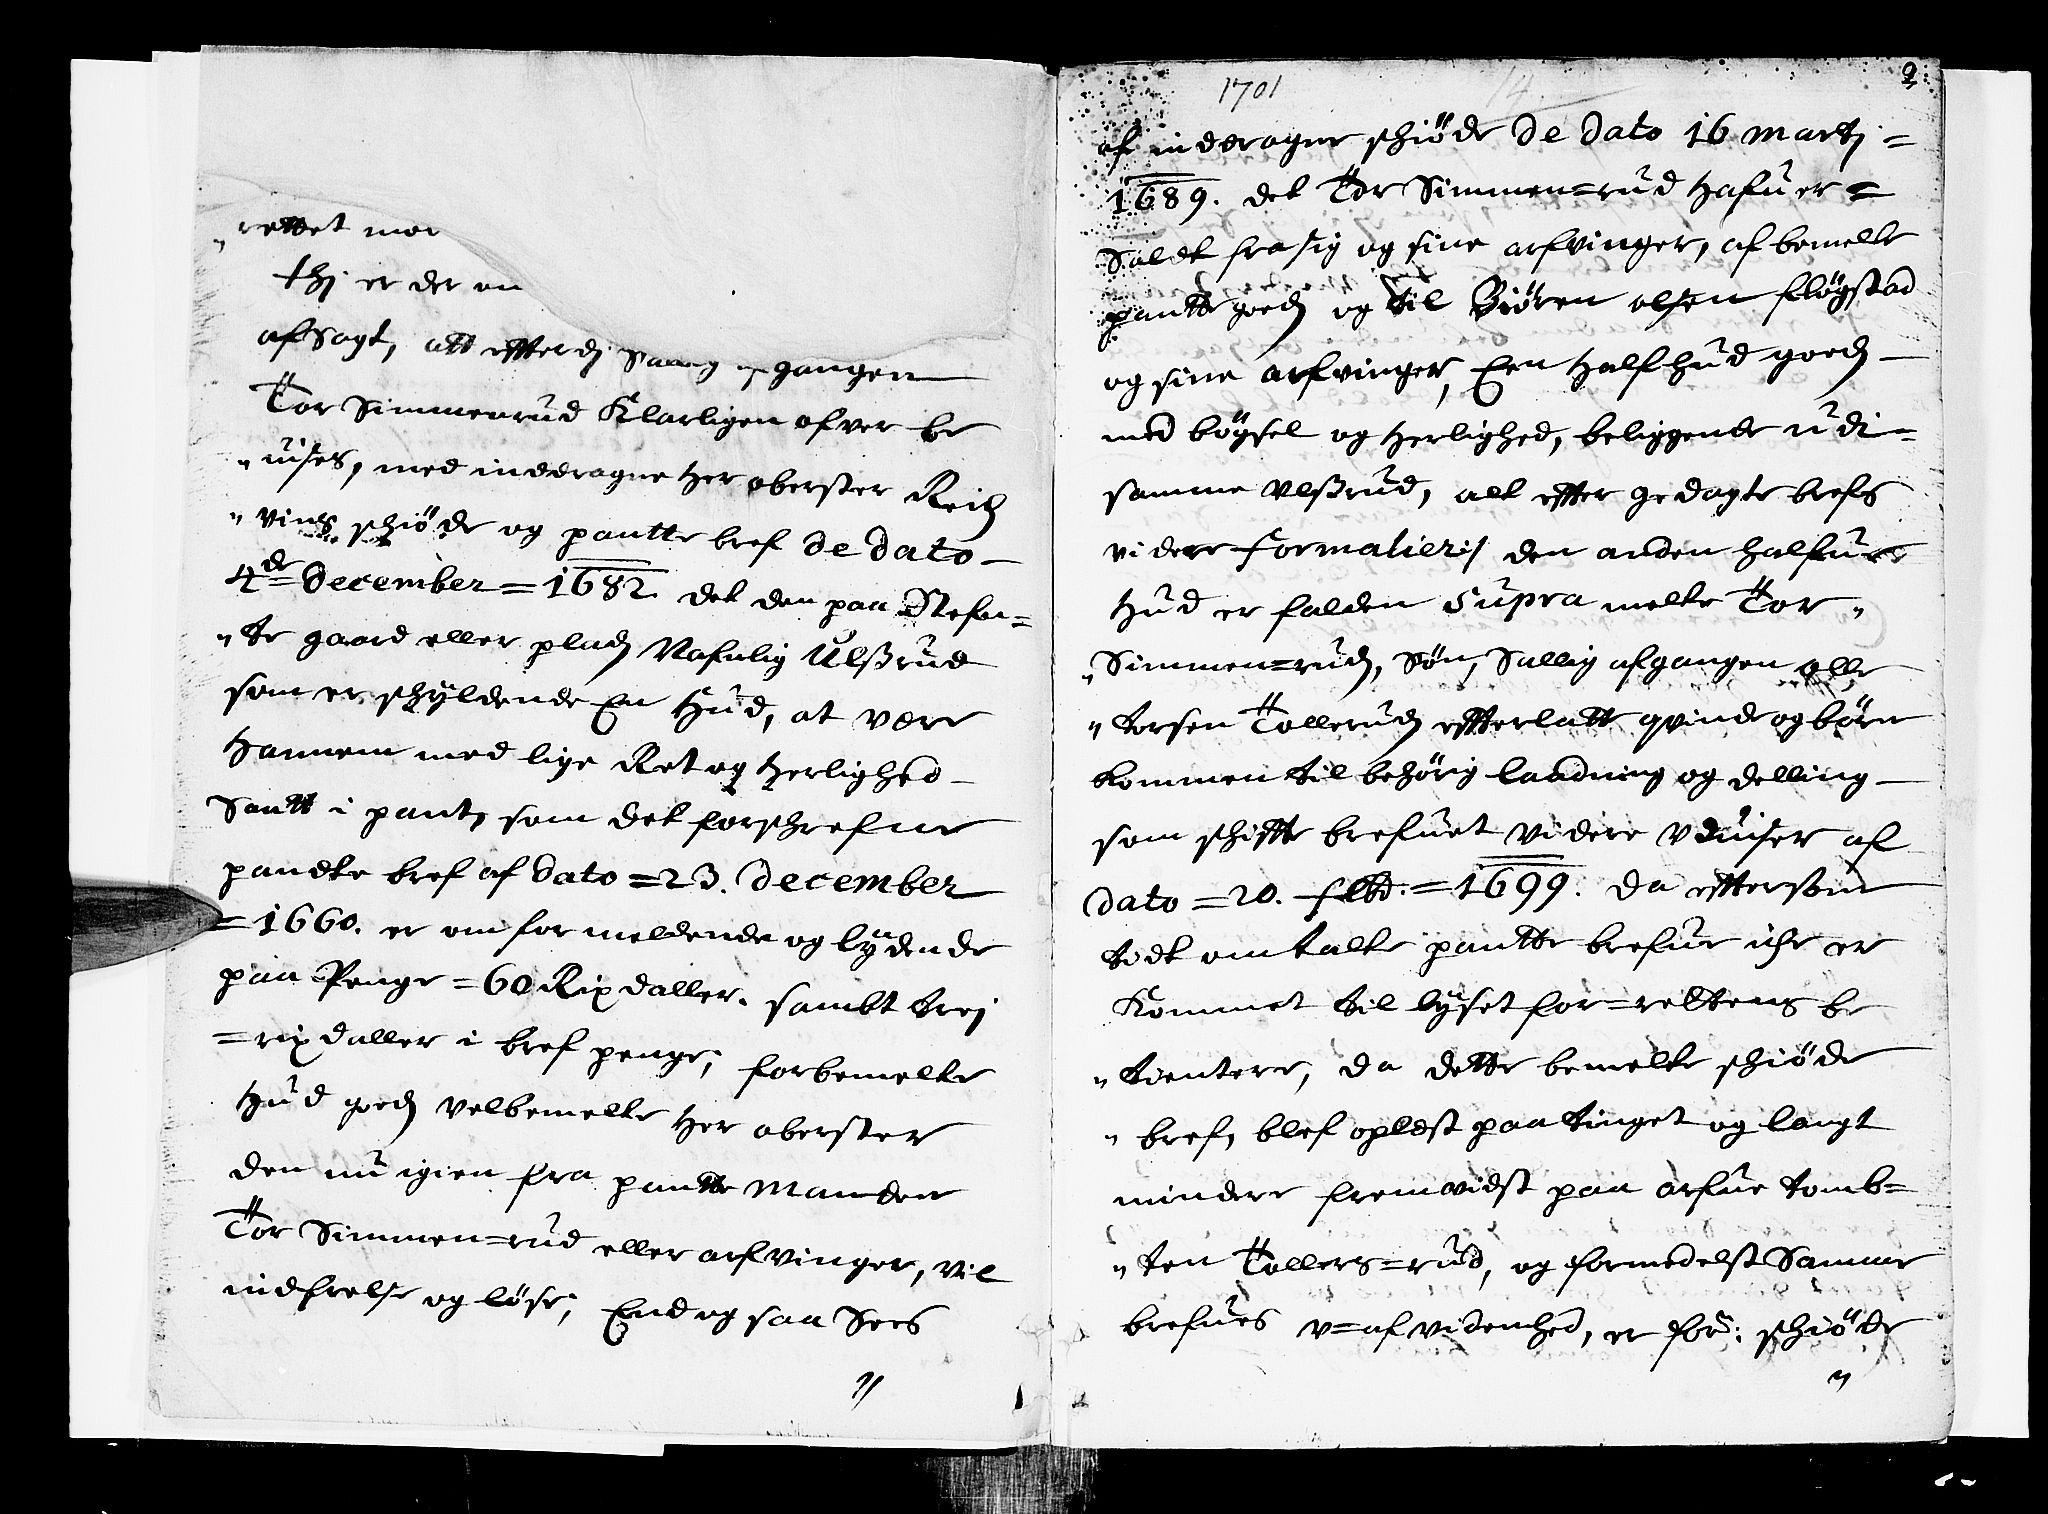 "rettet mod
thi er der on
afsagt, att effterdj Saallig afgangen
Tor Simmenrud Klarligen ofver be
"uises, med inddragne Her oberster Reich
"vins schiöde og pantte bref de dato
4de December = 1682. det den paa Stefn=
"te gaard eller pladz Nafnlig Ulssrud
som er schyldende En Hud, at vere
Hannem med lige Ret og Herlighed
Santt i pant, som det forschrefne
pandte bref af dato = 23. December
= 1660. er om formeldende og lydende
paa Penge = 60 Rix daller. sambt trej
= rixdaller i bref penge; forbemelte
Hud godz velbemelte Her oberster
den nu igien fra pantte Manden
Tor Simmen=rud eller arfvinger, vil
indfrelse og löse; End og saa Sees
"
1701
14
2
af inddragne schiöde de dato 16 martj =
1689. det Tor Simmen=rud Hafuer =
Soldt fra sig og sine arfvinger, af bemelte
pantte godz og til Biören olsen flögstad
og sine arfvinger, Een Half hud godz
med böysel og Herlighed, beliggende udi=
samme Ulssrud, alt effter gedagte brefs
videre formalier:/ den anden halfue
Hud er falden supra melte Tor"
"Simmen=rudz, Søn, Sallig afgangen olle
"torsen Tollerudz effterlatt qvinde og börn
kommen til behörig laadning og delling
som schiffte brefuet videre vduiser af
dato = 20. febr: = 1699. da effttersom
tidt omtalte pantte brefue iche er
Kommet til lyset for=rettens be
"tientere, da dette bemelte schiöde
"bref, blef oplest paa tinget og langt
mindere fremvidst paa arfue tomb=
"ten Tollers=rud, og formedelst Samme
brefues v=afvidenhed, er for: schiöde
"